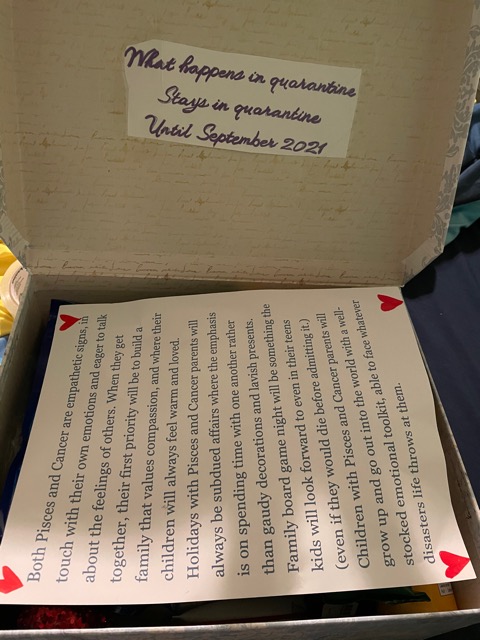 What happens in quarantine
Stays in quarantine
Until September 2021
Both Pisces and Cancer are empathetic signs, in
touch with their own emotions and eager to talk
about the feelings of others. When they get
together, their first priority will be to build a
family that values compassion, and where their
children will always feel warm and loved.
Holidays with Pisces and Cancer parents will
always be subdued affairs where the emphasis
is on spending time with one another rather
than gaudy decorations and lavish presents.
Family board game night will be something the
kids will look forward to even in their teens
(even if they would die before admitting it.)
Children with Pisces and Cancer parents will
grow up and go out into the world with a well-
stocked emotional toolkit, able to face whatever
disasters life throws at them.